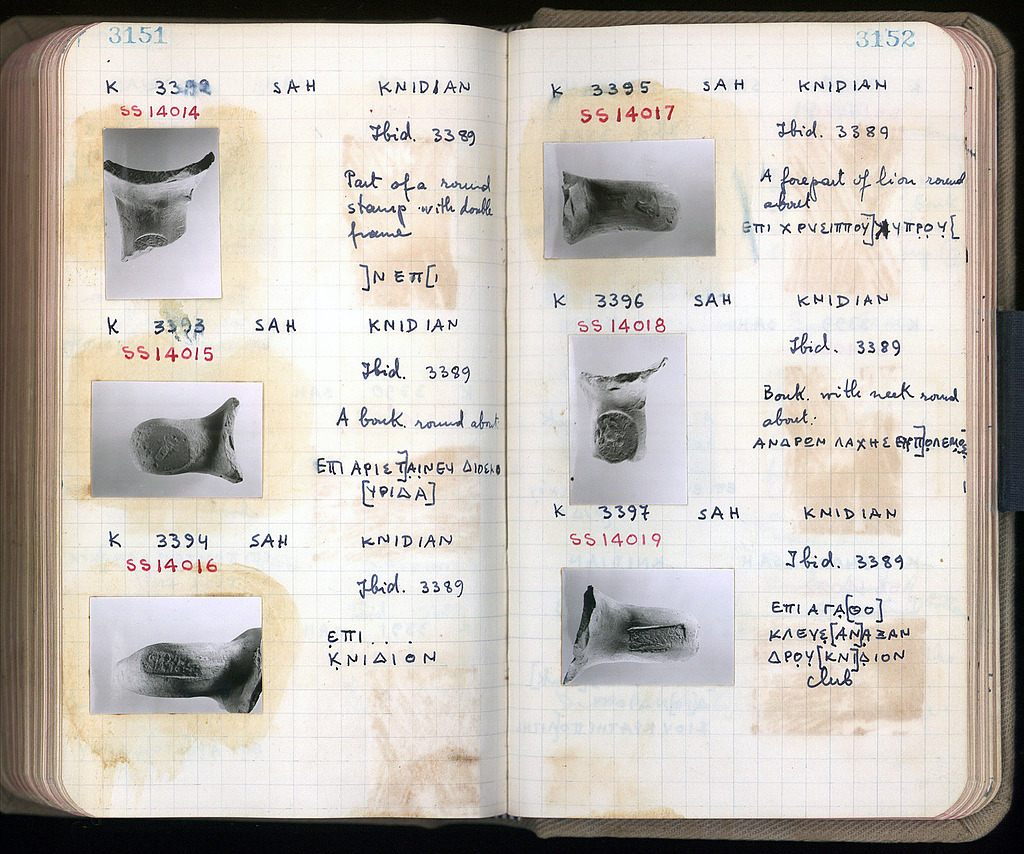 3151
K 3392 SAH KNIDIAN
SS 14014
Ibid. 3389
Part of a round
stamp with double
frame
]Ν ΕΠ[Ι
K 3393 SAH KNIDIAN
SS 14015
Ibid. 3389
A bouk. round about
ΕΠΙ ΑΡΙΣΤ]ΑΙΝΕΥ ΔΙΟΣΚΟ
[ΥΡΙΔΑ]
K 3394 SAH KNIDIAN
SS 14016
Ibid. 3389
ΕΠΙ . . .
ΚΝΙΔΙΟΝ
3152
K 3395 SAH KNIDIAN
SS 14017
Ibid. 3389
A forepart of lion round
about
ΕΠΙ ΧΡΥΣΙΠΠΟΥ] ΚΥΠΡΟΥ[
K 3396 SAH KNIDIAN
SS 14018
Ibid. 3389
Bouk. with neck round
about:
ΑΝΔΡΩΝ ΛΑΧΗΣ ΕΡΠ]ΟΛΕΜΟΣ
K 3397 SAH KNIDIAN
SS 14019
Ibid. 3389
ΕΠΙ ΑΓΑ[ΘΟ]
ΚΛΕΥΣ [ΑΝ]ΑΞΑΝ
ΔΡΟΥ [ΚΝ]ΙΔΙΟΝ
club